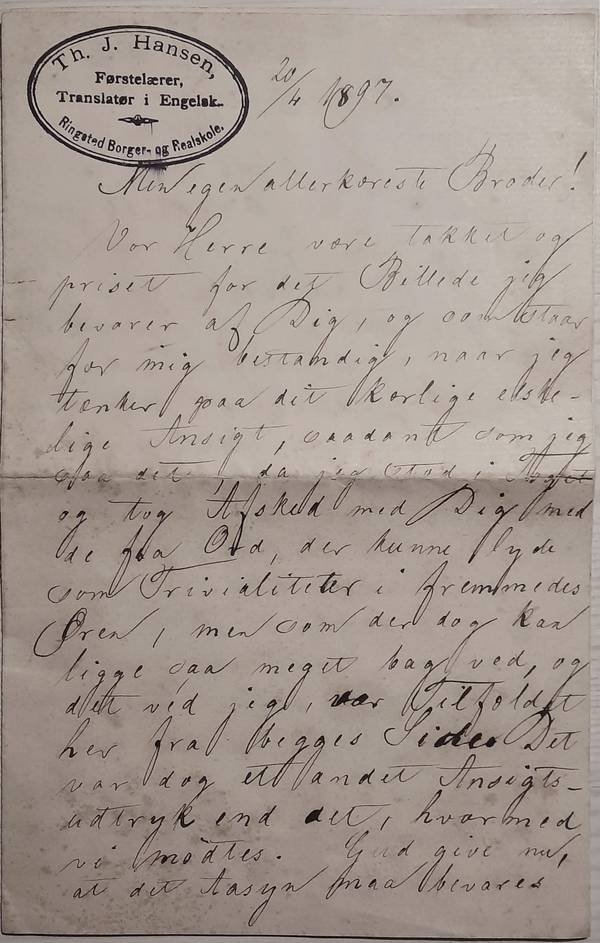 Th. J. Hansen,
Førstelærer,
Translatør i Engelsk.
Ringsted Borger- og Realskole.
20/4 1897.
Min egen allerkæreste Broder!
Vor Herre være takket og
priset for det Billede jeg
bevarer af Dig, og som staar
for mig bestandig, naar jeg
tænker paa dit kærlige elske-
lige Ansigt, saadant som jeg
saa det, da jeg stod i Toget
og tog Afsked med Dig med
de faa Ord, der kunne lyde
som Trivialiteter i fremmedes
Øren, men som der dog kan
ligge saa meget bag ved, og
det ved jeg, var Tilfældet
her fra begges Side. Det
var dog et andet Ansigts-
udtryk end det, hvormed
vi mødtes. Gud give nu,
at det Aasyn maa bevares